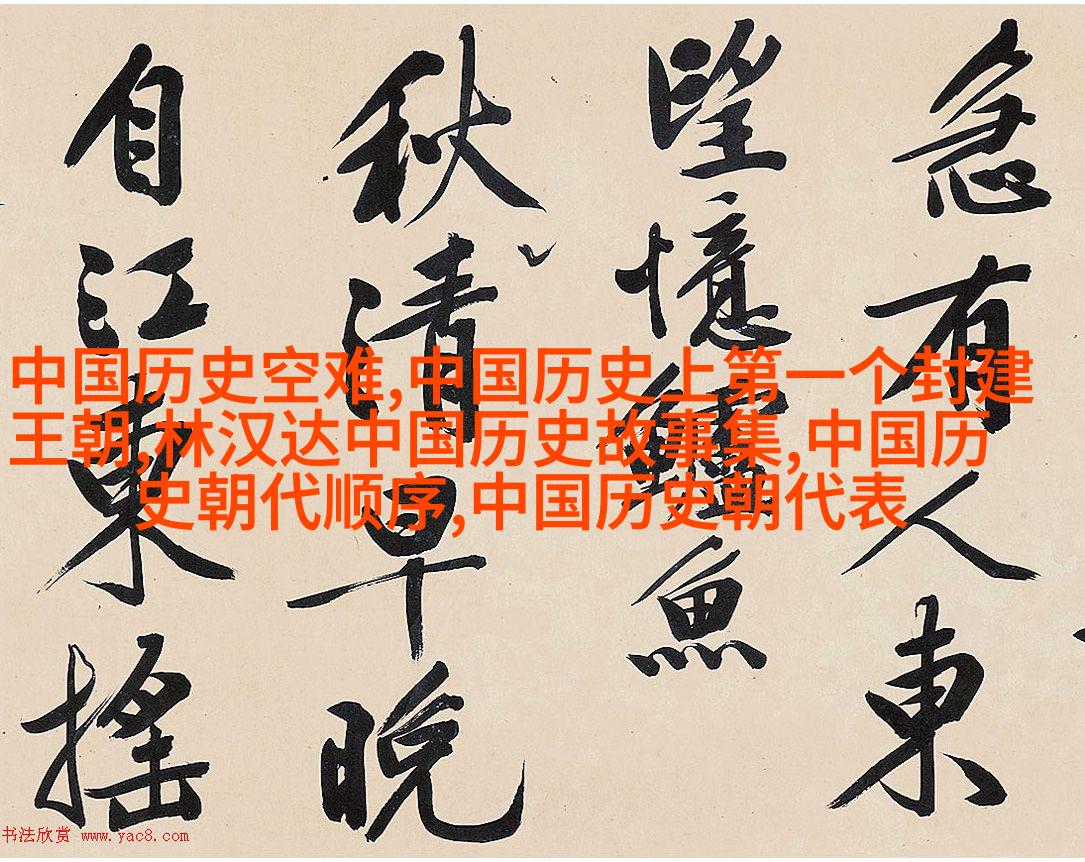 急有人東
望憶鱸魚
秋清早晚
自江東搖
中国历史空难,中国历史上第一个封建
王朝,林汉达中国历史故事集,中国历
史朝代顺序,中国历史朝代表
书法欣赏 www.yac8.com